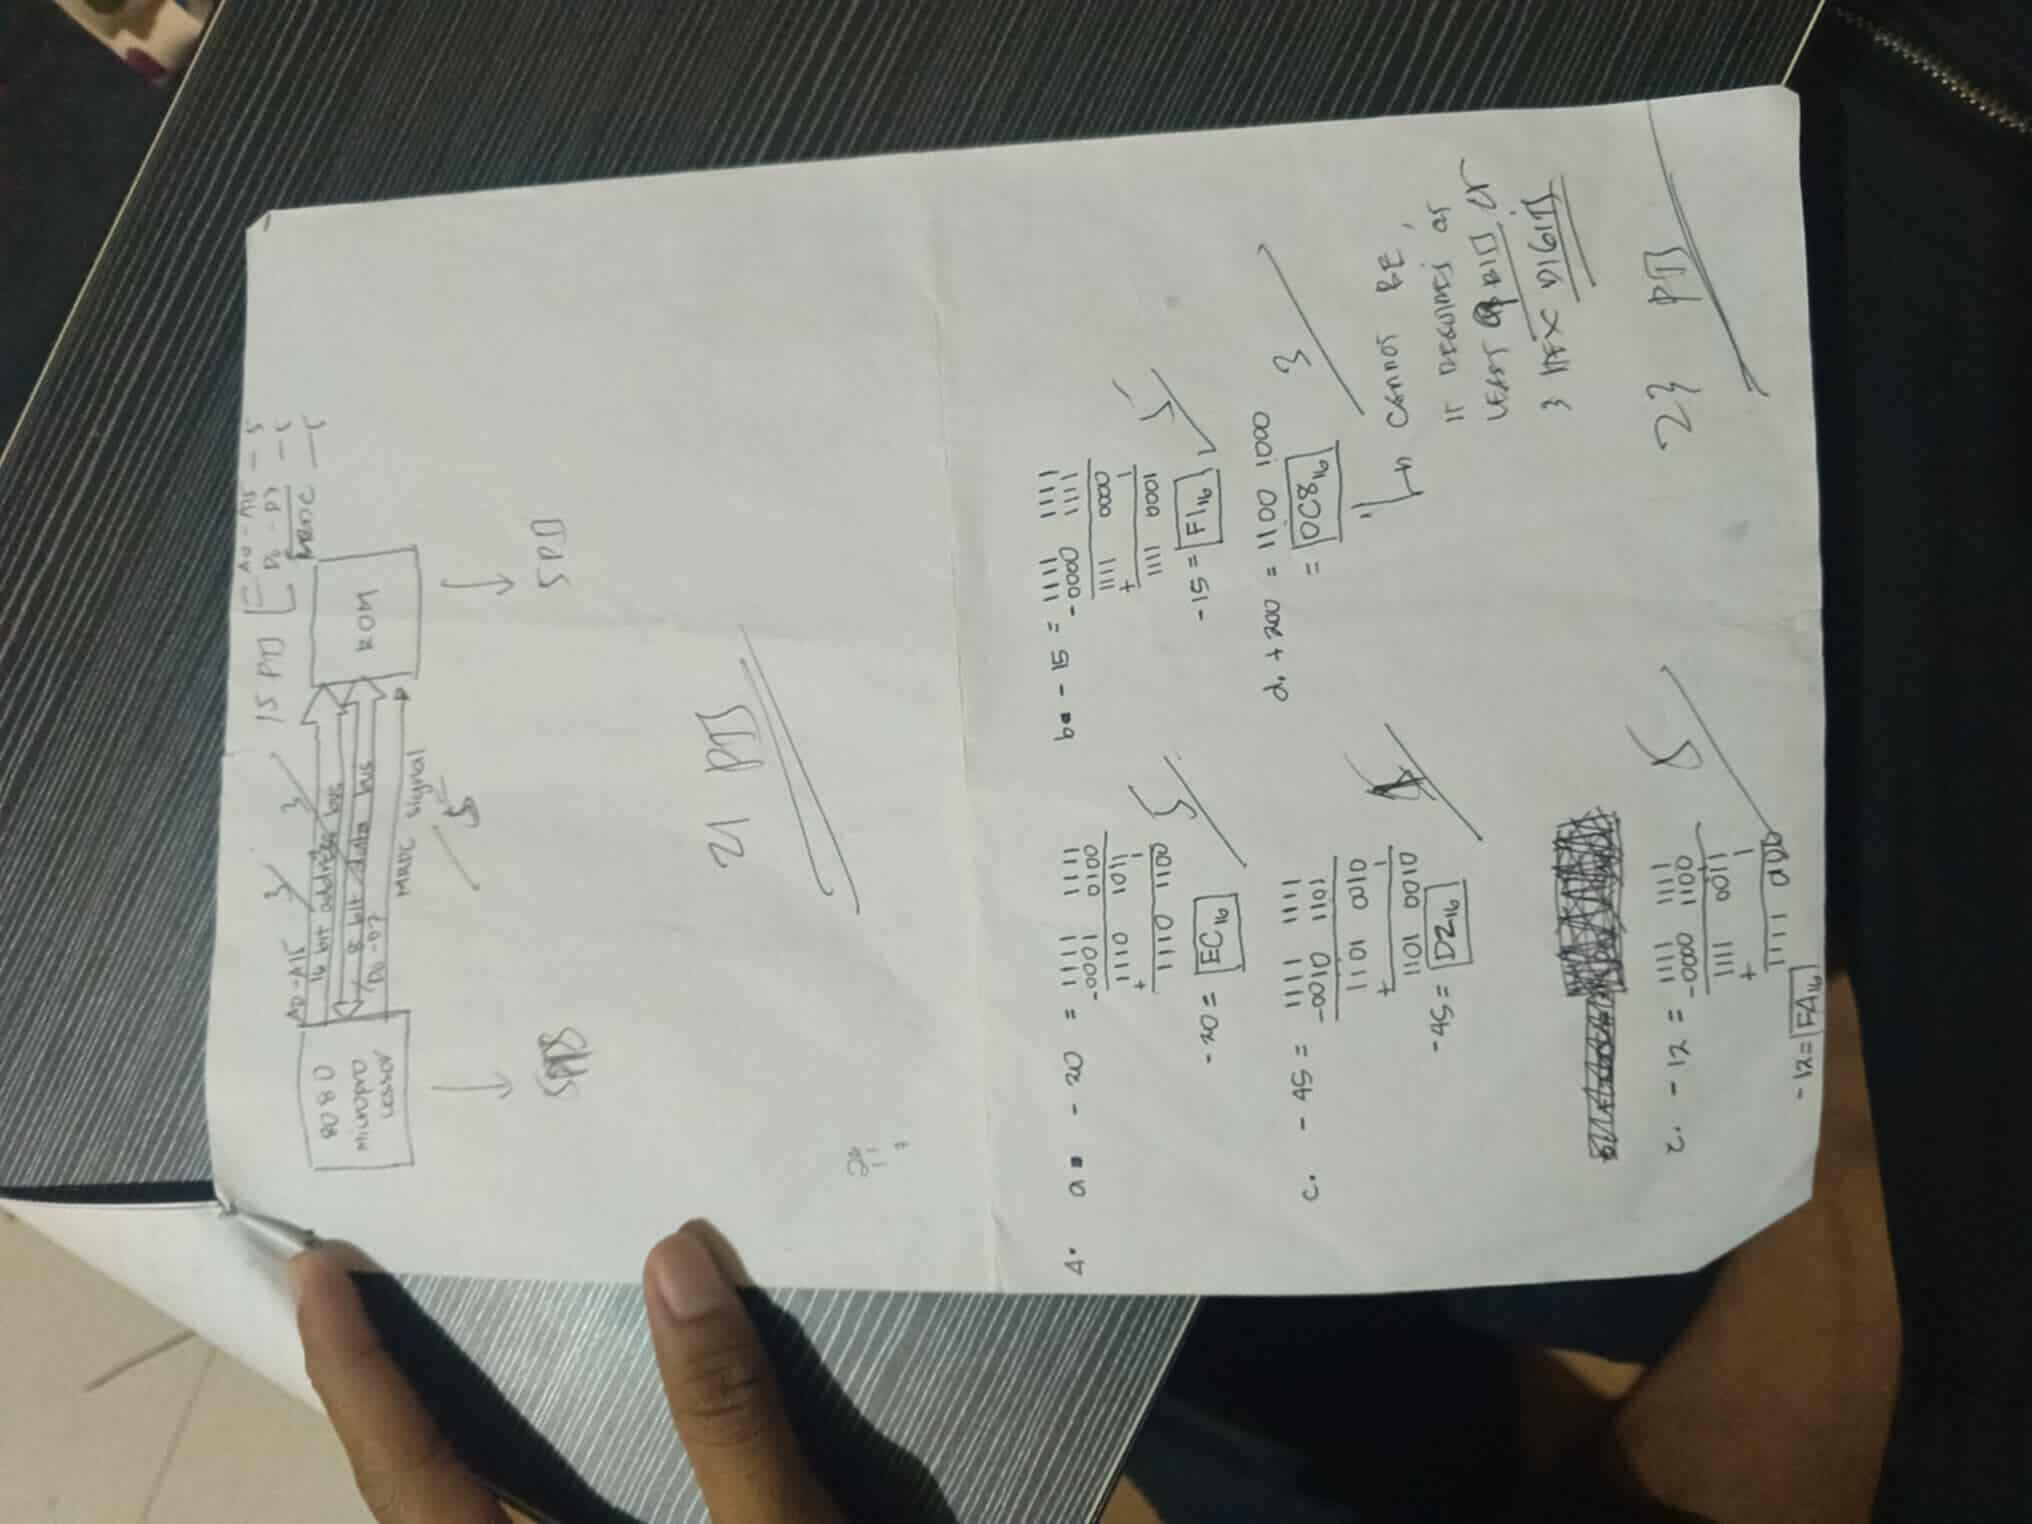 15 PTS
A0 - A15 - 5
D0 - D7 - 5
MRDC - 5
3
3
A0 - A15
16 bit address bus
8 bit data bus
D0 - D7
MRDC signal
8080
Micropro
cessor
ROM
5
5PTS
5PTS
21 PTS
4. a. - 20 = 1111 1111
-0001 0100
1110 1011
+ 1
1110 1100
- 20 = EC16
5
b. - 15 = 1111 1111
- 0000 1111
1111 0000
+ 1
1111 0001
- 15 = F116
5
c. - 45 = 1111 1111
-0010 1101
1101 0010
+ 1
1101 0010
-45 = D216
d. + 200 = 1100 1000
= 0C816
3
CANNOT BE,
IT REQUIRES AT
LEAST 9 BITS or
3 HEX DIGITS
- 12 = 1111 1111
-0000 1100
1111 0011
+ 1
1111
- 12 = FA16
5
23 PTS